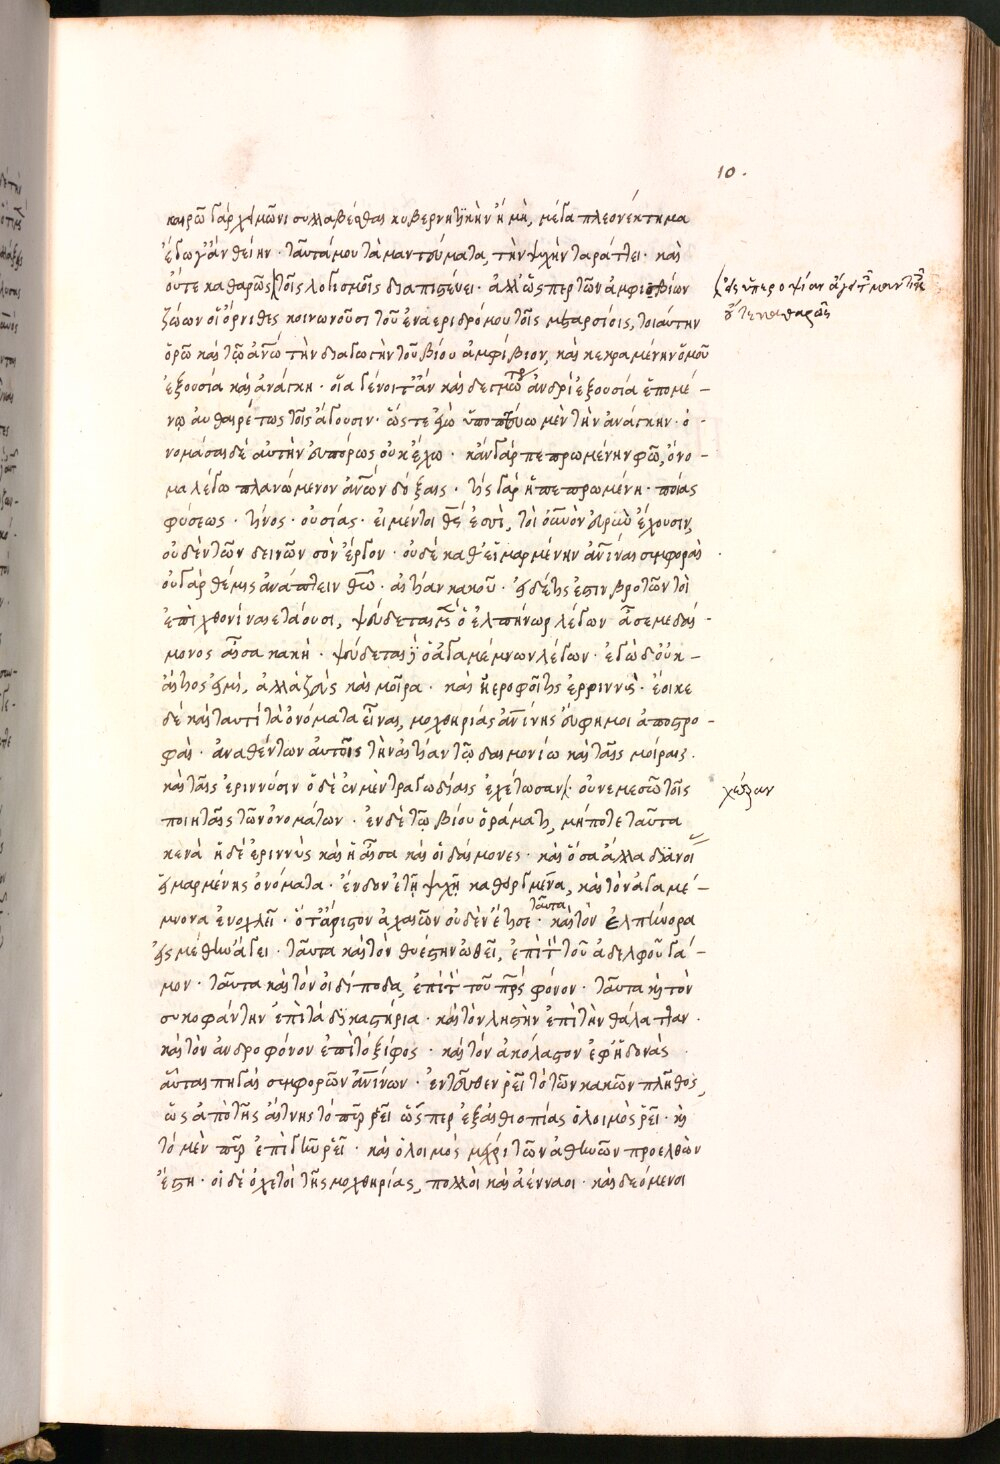 10.
καιρῶ γὰρ χειμῶνι συλλαβέσθαι κυβερνητικὴν ἢ μὴ, μέγα πλεονέκτημα
ἔγωγ' ἂν θείην · ταῦτά μου τὰ μαντεύματα, τὴν ψυχὴν ταράττει · καὶ
οὔτε καθαρῶς τοῖς λογισμοῖς διαπιστεύει · ἀλλ' ὥσπερ τῶν ἀμφιβίων
(εἰς ὑπεροψίαν ἄγει μαντικῆς
οὔτε καθαρῶς
ζώων οἱ ὄρνιθες κοινωνοῦσι τοῦ ἐναερίου δρόμου τοῖς μεταρσίοις, τοιαύτην
ὁρῶ καὶ τῷ ἀνῶ τὴν διαγωγὴν τοῦ βίου ἀμφίβιον, καὶ κεκραμένην ὁμοῦ
ἐξουσία καὶ ἀνάγκη · οἵα γένοιτ' ἂν καὶ δεσμώτῃ ἀνδρὶ ἐξουσία ἑπομέ-
νῳ αὐθαιρέτως τοῖς ἄγουσιν · ὥστε ἐγὼ ὑποπτεύω μὲν τὴν ἀνάγκην · ὀ-
νομάσαι δὲ αὐτὴν εὐπόρως οὐκ ἔχω · κἂν γὰρ πεπρωμένην φῶ, ὄνο-
μα λέγω πλανώμενον ἐν ἀνῶν δόξαις · τίς γὰρ ἡ πεπρωμένη · ποίας
φύσεως · τίνος · οὐσίας · εἰ μέντοι θεός ἐσσὶ, τοὶ οὐρανὸν εὐρὺν ἔχουσιν,
οὐδὲν τῶν δεινῶν σὸν ἔργον · οὐδὲ καθ' εἱμαρμένην ἀνίναι συμφοραὶ
οὐ γὰρ θέμις ἀνάπτειν θεῶ · αἰτίαν κακοῦ · εἰ δέ τις ἐστιν βροτῶν τοὶ
ἐπὶ χθονὶ ναιετάουσι, ψεύδεται μὲν ὁ ἐλπήνωρ λέγων ἆσέ με δαί-
μονος αἶσα κακὴ · ψεύδεται δὲ ὁ ἀγαμέμνων λέγων · ἐγὼ δ' οὐκ-
αἴτιός εἰμι, ἀλλὰ ζεὺς καὶ μοῖρα · καὶ ἠεροφοῖτις ἐρριννὺς · ἔοικε
δὲ καὶ ταυτὶ τὰ ὀνόματα εἶναι, μοχθηρίας ἀνίνης εὔφημοι ἀποστρο-
φαὶ · ἀναθέντων αὐτοῖς τὴν αἰτίαν τῷ δαιμονίω καὶ ταῖς μοίραις.
καὶ ταῖς ἐριννύσιν ὁ δὲ ἐν μὲν τραγωδίαις ἐχέτωσαν · οὐ νεμεσῶ τοῖς
χώραν
ποιηταῖς τῶν ὀνομάτων · ἐν δὲ τῷ βίου δράματι, μήποτε ταῦτα
κενὰ ἡ δὲ ἐριννὺς καὶ ἡ αἶσα καὶ οἱ δαίμονες · καὶ ὅσα ἄλλα διανοί
εἱμαρμένης ὀνόματα · ἔνδον ἐν τῇ ψυχῇ καθειργμένα, καὶ τὸν ἀγαμέ-
μνονα ἐνοχλεῖ · ὅτ' ἄριστον ἀχαιῶν οὐδὲν ἔτισε · ταῦτα καὶ τὸν ἐλπήνορα
εἰς μέθην ἄγει · ταῦτα καὶ τὸν θυέστην ὠθεῖ, ἐπὶ τὸν τοῦ ἀδελφοῦ γά-
μον · ταῦτα καὶ τὸν οἰδίποδα, ἐπὶ τὸν τοῦ πρς φόνον · ταῦτα καὶ τὸν
συκοφάντην ἐπὶ τὰ δικαστήρια · καὶ τὸν ληστὴν ἐπὶ τὴν θάλατταν ·
καὶ τὸν ἀνδροφόνον ἐπὶ τὸ ξίφος · καὶ τὸν ἀκόλαστον ἐφ' ἡδονάς
αὗται πηγαὶ συμφορῶν ἀνίνων · ἐντεῦθεν ῥεῖ τὸ τῶν κακῶν πλῆθος,
ὡς ἀπὸ τῆς αἴτνης τὸ πῦρ ῥεῖ ὥσπερ ἐξ αἰθιοπίας ὁ λοιμὸς ῥεῖ · καὶ
τὸ μὲν πῦρ ἐπὶ γῆν ῥεῖ · καὶ ὁ λοιμός μέχρι τῶν ἀθηνῶν προελθὼν
ἔστη · οἱ δὲ ὀχετοὶ τῆς μοχθηρίας, πολλοὶ καὶ ἀένναοι · καὶ δεόμενοι